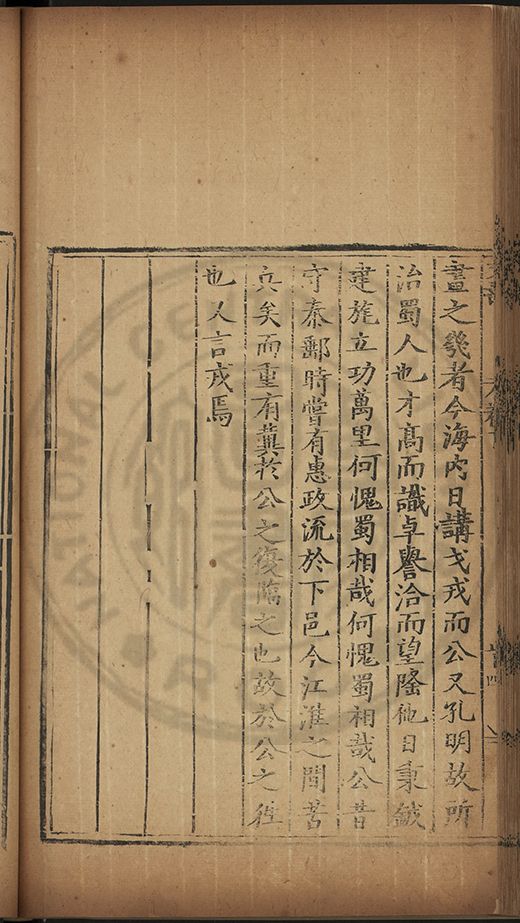 畫之幾者今海內日講戈戎而公又孔明故所
治蜀人也才高而識卓譽洽而望隆他日秉鉞
建旄立功萬里何愧蜀相哉何愧蜀相哉公昔
守秦郵時嘗有惠政流於下邑今江淮之間苦
兵矣而重有冀於公之復臨之也故於公之徃
也又言戎焉